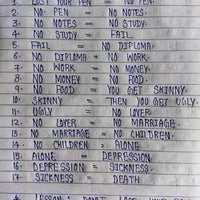 1. LOST YOUR PEN = NO PEN.
2. NO PEN = NO NOTES.
3. NO NOTES = NO STUDY.
4. NO STUDY = FAIL
5. FAIL = NO DIPLOMA.
6. NO DIPLOMA = NO WORK.
7. NO WORK = NO MONEY.
8. NO MONEY = NO FOOD.
9. NO FOOD = YOU GET SKINNY.
10. SKINNY = THEN YOU GET UGLY.
11. UGLY = NO LOVER.
12. NO LOVER = NO MARRIAGE.
13. NO MARRIAGE = NO CHILDREN.
14. NO CHILDREN = ALONE
15. ALONE = DEPRESSION.
16. DEPRESSION = SICKNESS
17. SICKNESS = DEATH
LESSON DON'T LOSE YOUR PEN